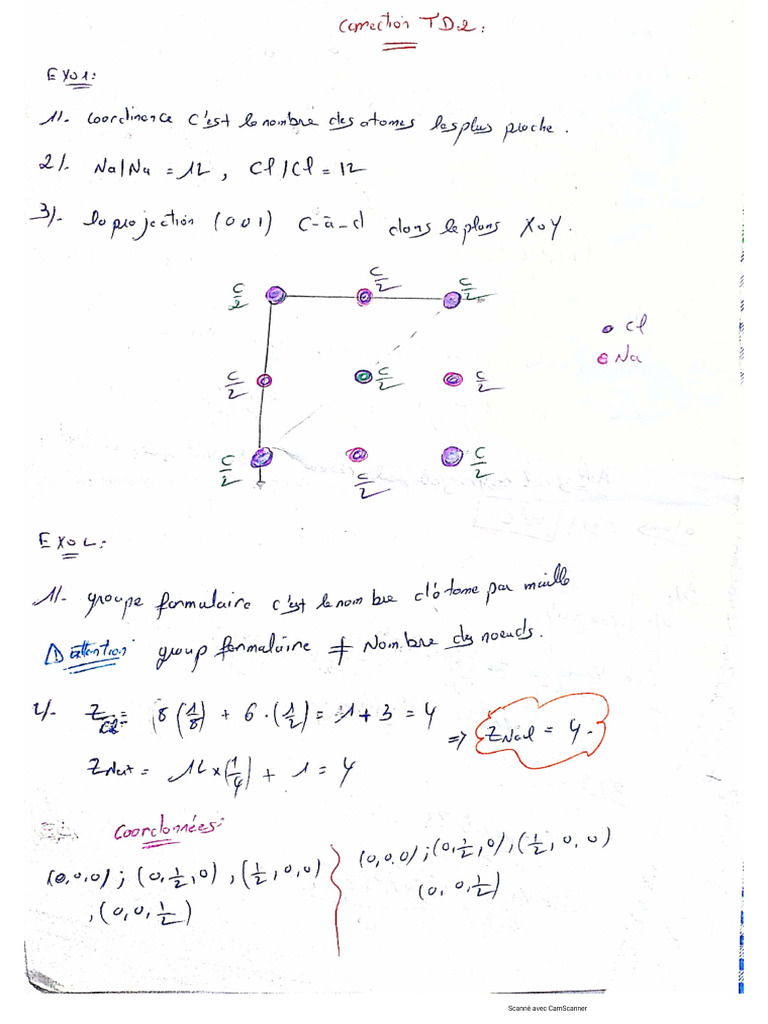 Correction TD2:
EXO1:
1/- Coordinence c'est le nombre des atomes les plus proche.
2/- Na/Na = 12, Cl/Cl = 12
3/- la projection (001) c-à-d dans le plans XoY.
c/2 c/2 c/2
Cl
Na
c/2 c/2 c/2
c/2 c/2 c/2
EXO2:
1/- groupe formulaire c'est le nombre d'atome par maille
⚠ attention: group formulaire ≠ Nombre des noeuds.
2/- Z Cl⁻ = 8(1/8) + 6·(1/2) = 1 + 3 = 4
=> Z NaCl = 4.
Z Na+ = 12×(1/4) + 1 = 4
Coordonnées:
(0,0,0); (0,1/2,0), (1/2,0,0)
,(0,0,1/2)
(0,0,0); (0,1/2,0), (1/2,0,0)
(0,0,1/2)
Scanné avec CamScanner